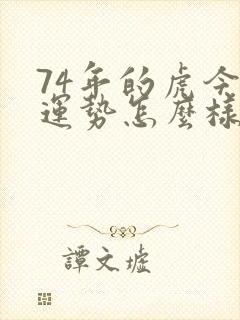 74年的虎今
運勢怎麼樣
譚文墟